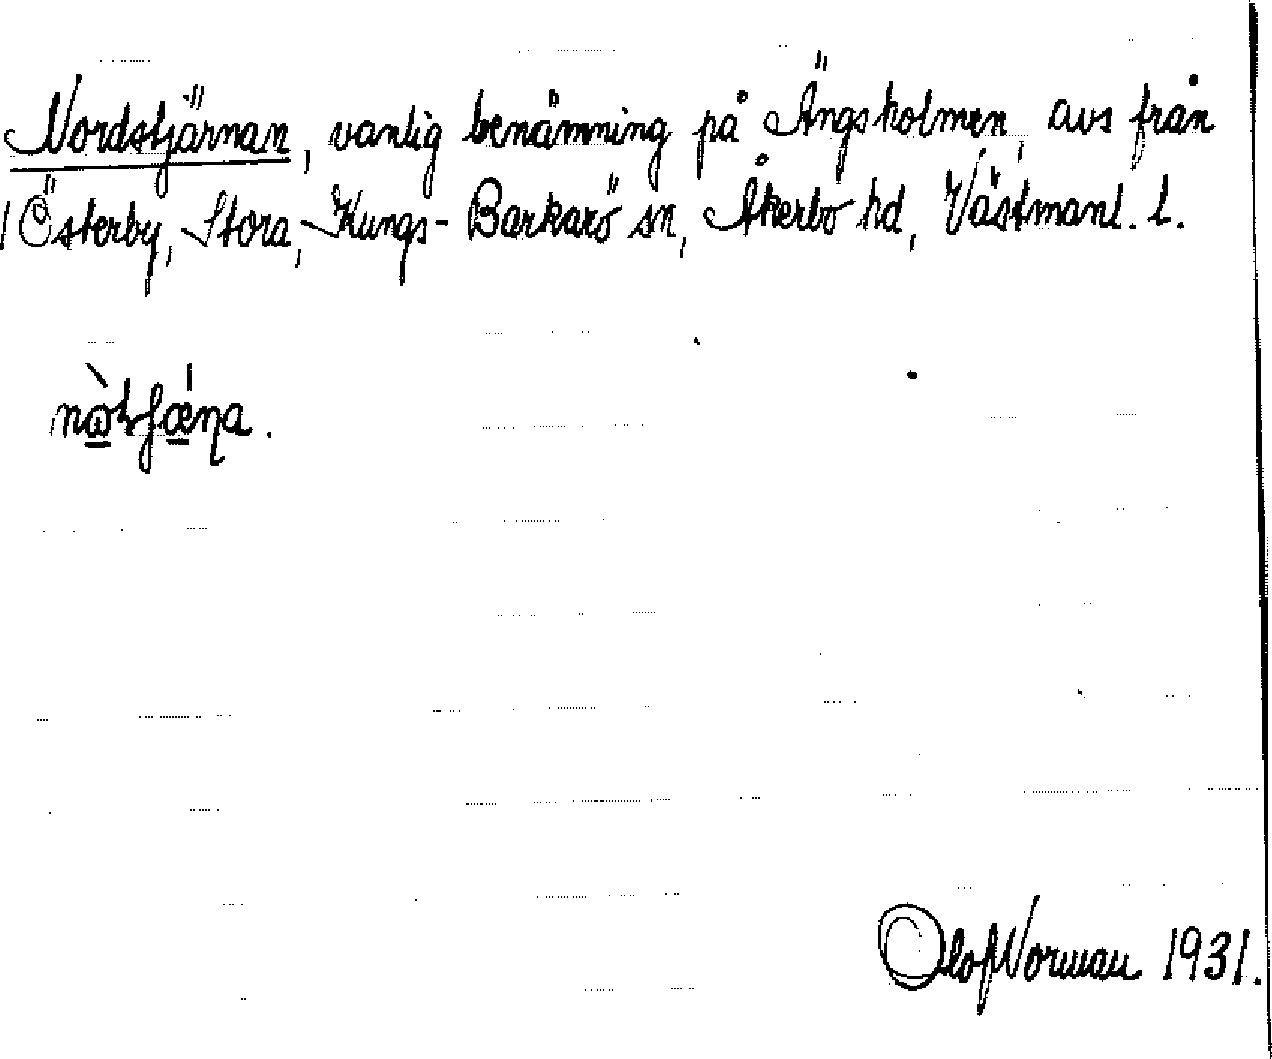 Nordstjärnan, vanlig benämning på Ängsholmen, avs från
Österby, Stora, Kungs-Barkarö sn, Åkerbo hd, Västmanl. l.
Olof Norman 1931.